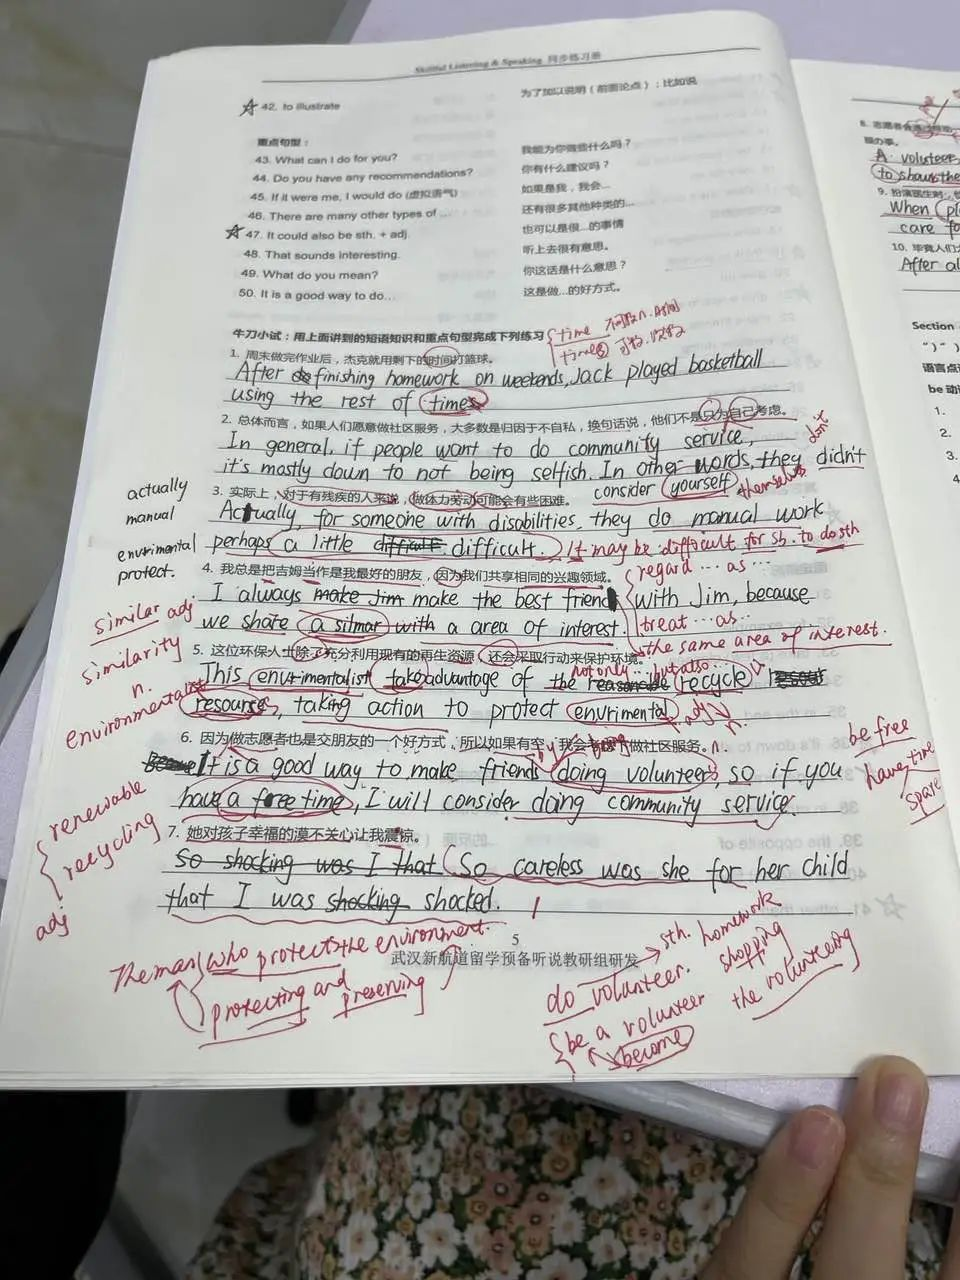 Skillful Listening & Speaking 同步练习册
42. to illustrate
为了加以说明（前面论点）；比如说
重点句型：
43. What can I do for you?
我能为你做些什么吗？
44. Do you have any recommendations?
你有什么建议吗？
45. If it were me, I would do (虚拟语气)
如果是我，我会...
46. There are many other types of ...
还有很多其他种类的...
47. It could also be sth. + adj.
也可以是很...的事情
48. That sounds interesting.
听上去很有意思。
49. What do you mean?
你这话是什么意思？
50. It is a good way to do...
这是做...的好方式。
牛刀小试：用上面讲到的短语知识和重点句型完成下列练习
time 不可数n. 时间
times 可数 次数
1. 周末做完作业后，杰克就用剩下的时间打篮球。
After finishing homework on weekends, Jack played basketball
using the rest of times
2. 总体而言，如果人们愿意做社区服务，大多数是归因于不自私，换句话说，他们不是只为自己考虑。
In general, if people want to do community service, don't
it's mostly down to not being selfish. In other words, they didn't
consider yourself themselves
3. 实际上，对于有残疾的人来说，做体力劳动可能会有些困难。
actually
manual
Actually, for someone with disabilities, they do manual work
envurimental
protect.
perhaps a little difficult difficult. It may be difficult for sb. to do sth
4. 我总是把吉姆当作是我最好的朋友，因为我们共享相同的兴趣领域。
regard ... as ...
I always make Jim make the best friend with Jim, because
treat ... as...
similar adj
we share a silmar with a area of interest.
the same area of interest.
similarity
n.
5. 这位环保人士除了充分利用现有的再生资源，还会采取行动来保护环境。
not only ... but also ...
This envurimentalist take advantage of the recycle
environmentalist
resourses, taking action to protect envurimental
adj n.
6. 因为做志愿者也是交朋友的一个好方式，所以如果有空，我会考虑下做社区服务。
n.
It is a good way to make friends doing volunteer, so if you
be free
have time
spare
have a free time, I will consider doing community service.
renewable
recycling
adj
7. 她对孩子幸福的漠不关心让我震惊。
So shocking was I that So careless was she for her child
that I was shocking shocked.
5
武汉新航道留学预备听说教研组研发
The man who protects the environment.
protecting and preserving
do volunteer.
sth. homework
shopping
the volunteering
be a volunteer
become
8. 志愿者会
A volunteer
to show the
9. 扮演医生时，
When
care fo
10. 毕竟人们
After al
Section
语言点
be 动
1.
2.
3.
4